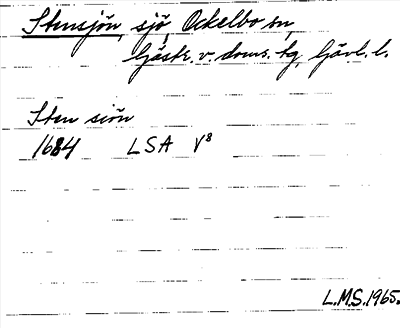 Stensjön, sjö, Ockelbo sn,
Gästr. v. doms. tg, Gävl. l.
Sten siön
1684 LSA V8
L.M.S. 1965.